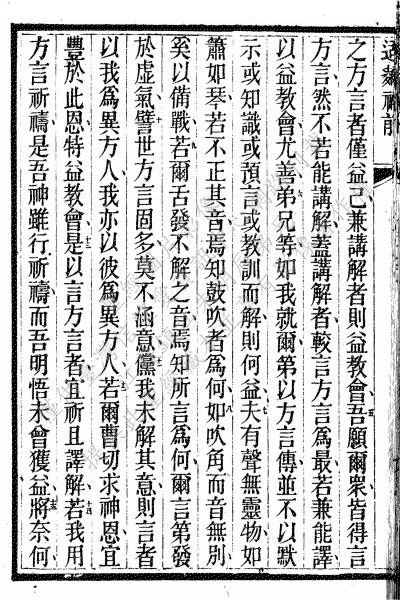 之方言者僅益己兼講解者則益教會吾願爾衆皆得言
方言然不若能講解蓋講解者較言方言爲最若兼能譯
以益教會尤善弟兄等如我就爾第以方言傳並不以默
示或知識或預言或教訓而解則何益夫有聲無靈物如
簫如琴若不正其音焉知鼓吹者爲何如吹角而音無別
奚以備戰若爾舌發不解之音焉知所言爲何爾言第發
於虛氣譬世方言固多莫不涵意儻我未解其意則言者
以我爲異方人我亦以彼爲異方人若爾曹切求神恩宜
豐於此恩特益教會是以言方言者宜祈且譯解若我用
方言祈禱是吾神雖行祈禱而吾明悟未曾獲益將奈何